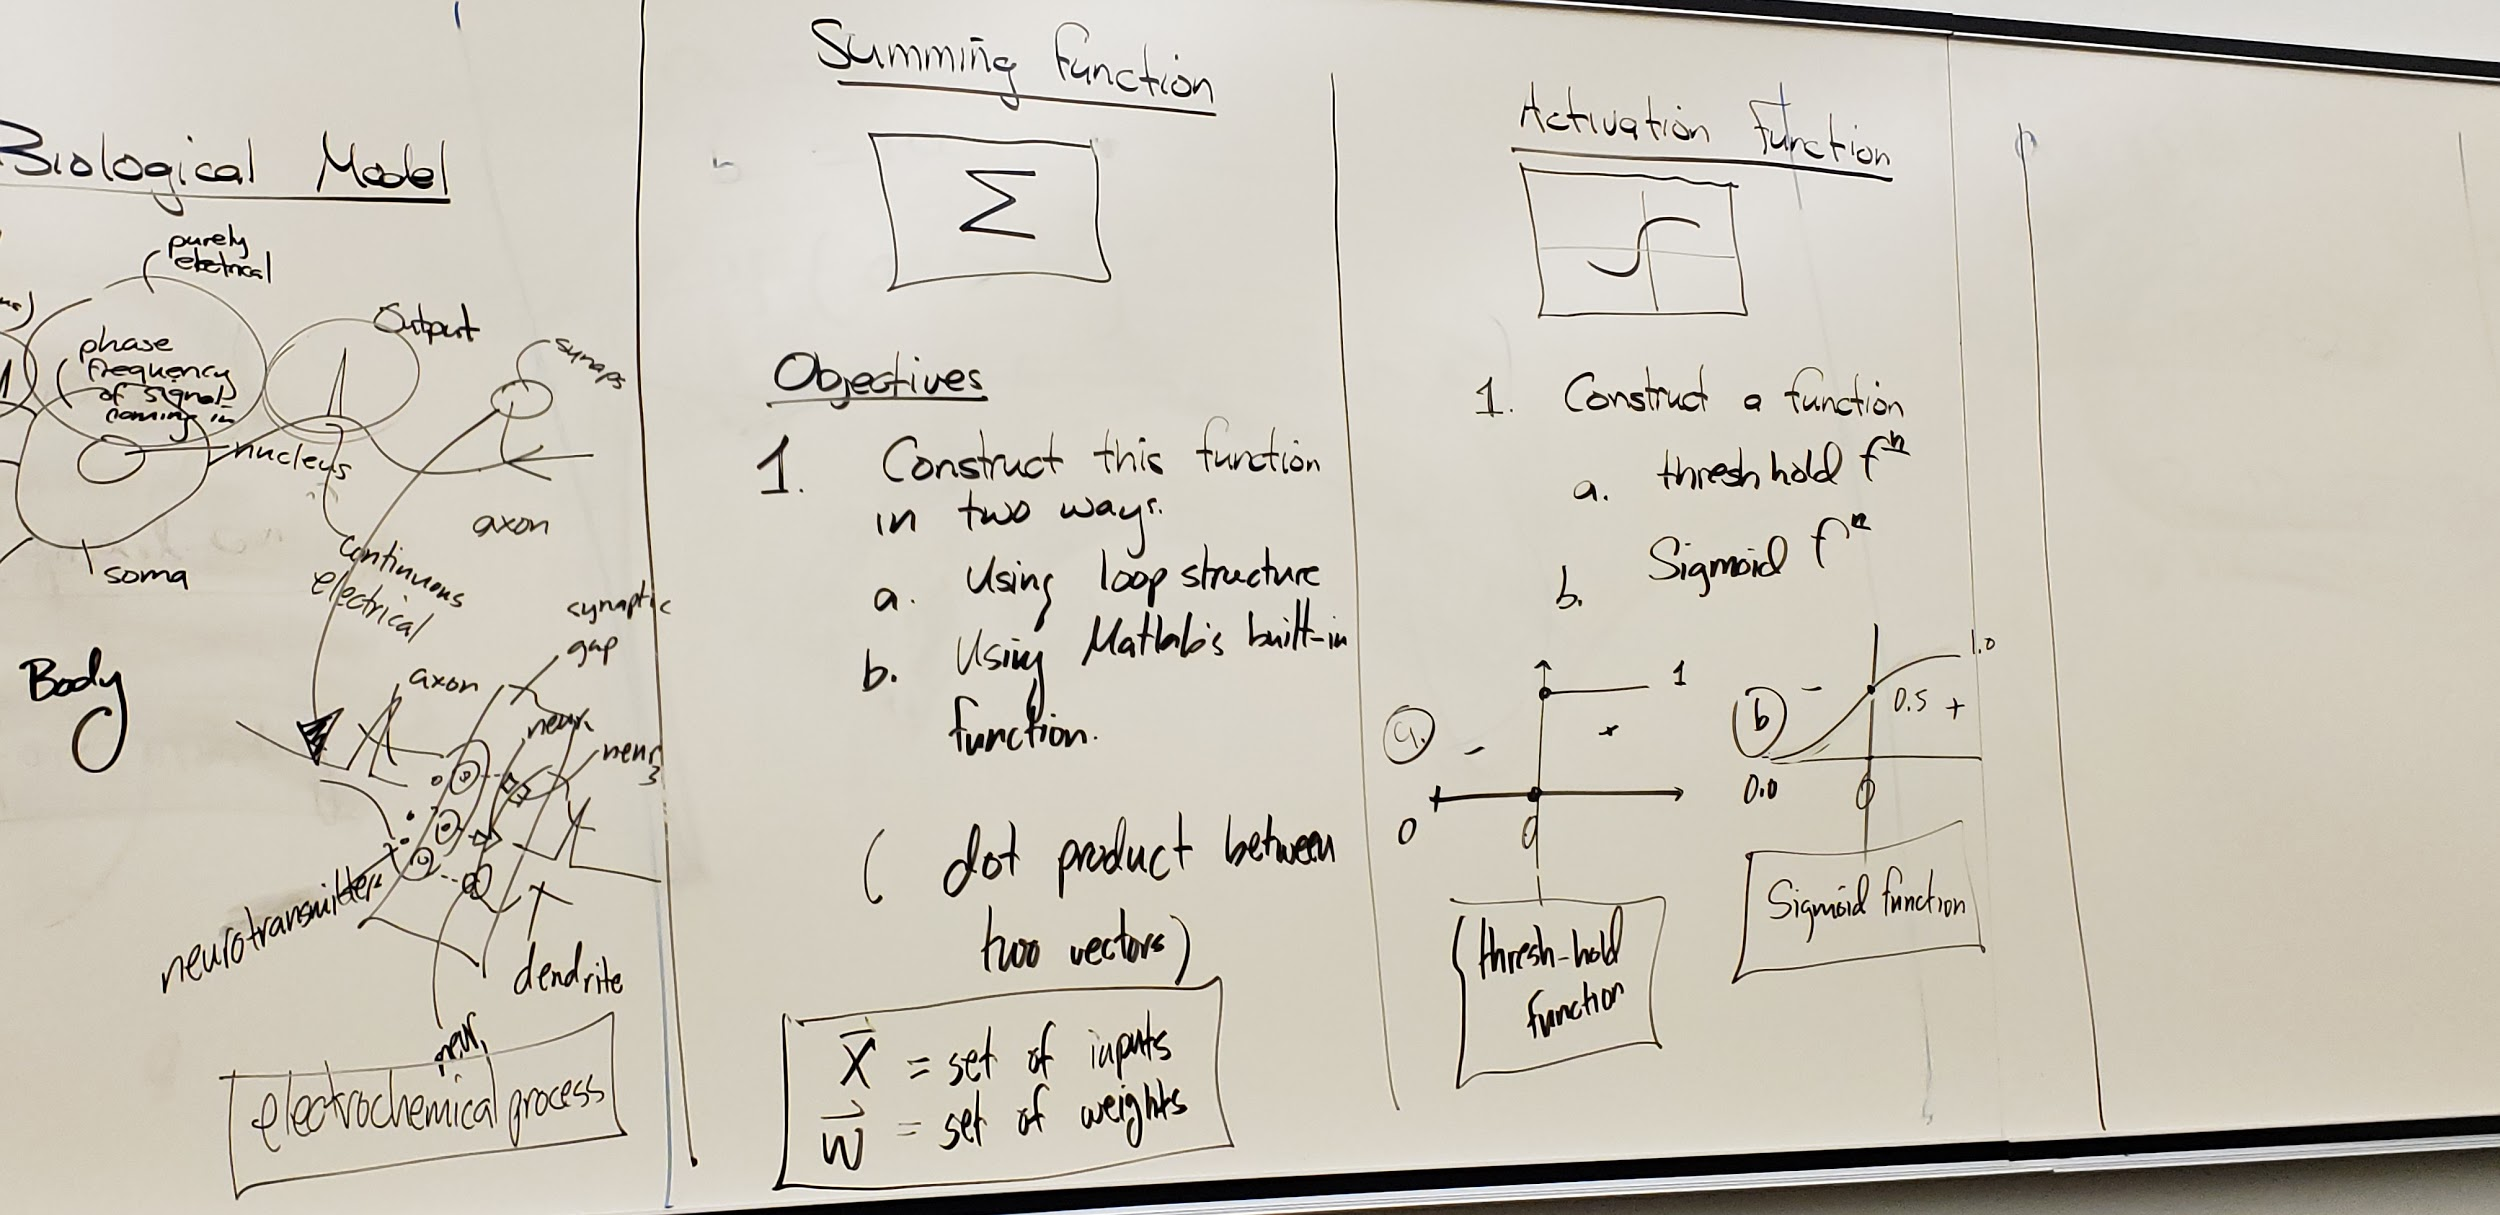 Biological Model
purely
electrical
phase
frequency
of signal
coming in
nucleus
soma
Output
synaps
axon
Continuous
electrical
Body
synaptic
gap
axon
neur
neur
3
neurotransmitter
dendrite
neur
electrochemical process
Summing Function
Σ
Objectives
1. Construct this function
in two ways.
a. Using loop structure
b. Using Matlab's built-in
function.
( dot product between
two vectors)
X = set of inputs
W = set of weights
Activation Function
1. Construct a function
a. thresh hold fⁿ
b. Sigmoid fⁿ
a.
-
+
1
0
0
thresh-hold
function
b
-
1.0
0.5 +
0.0
0
Sigmoid function